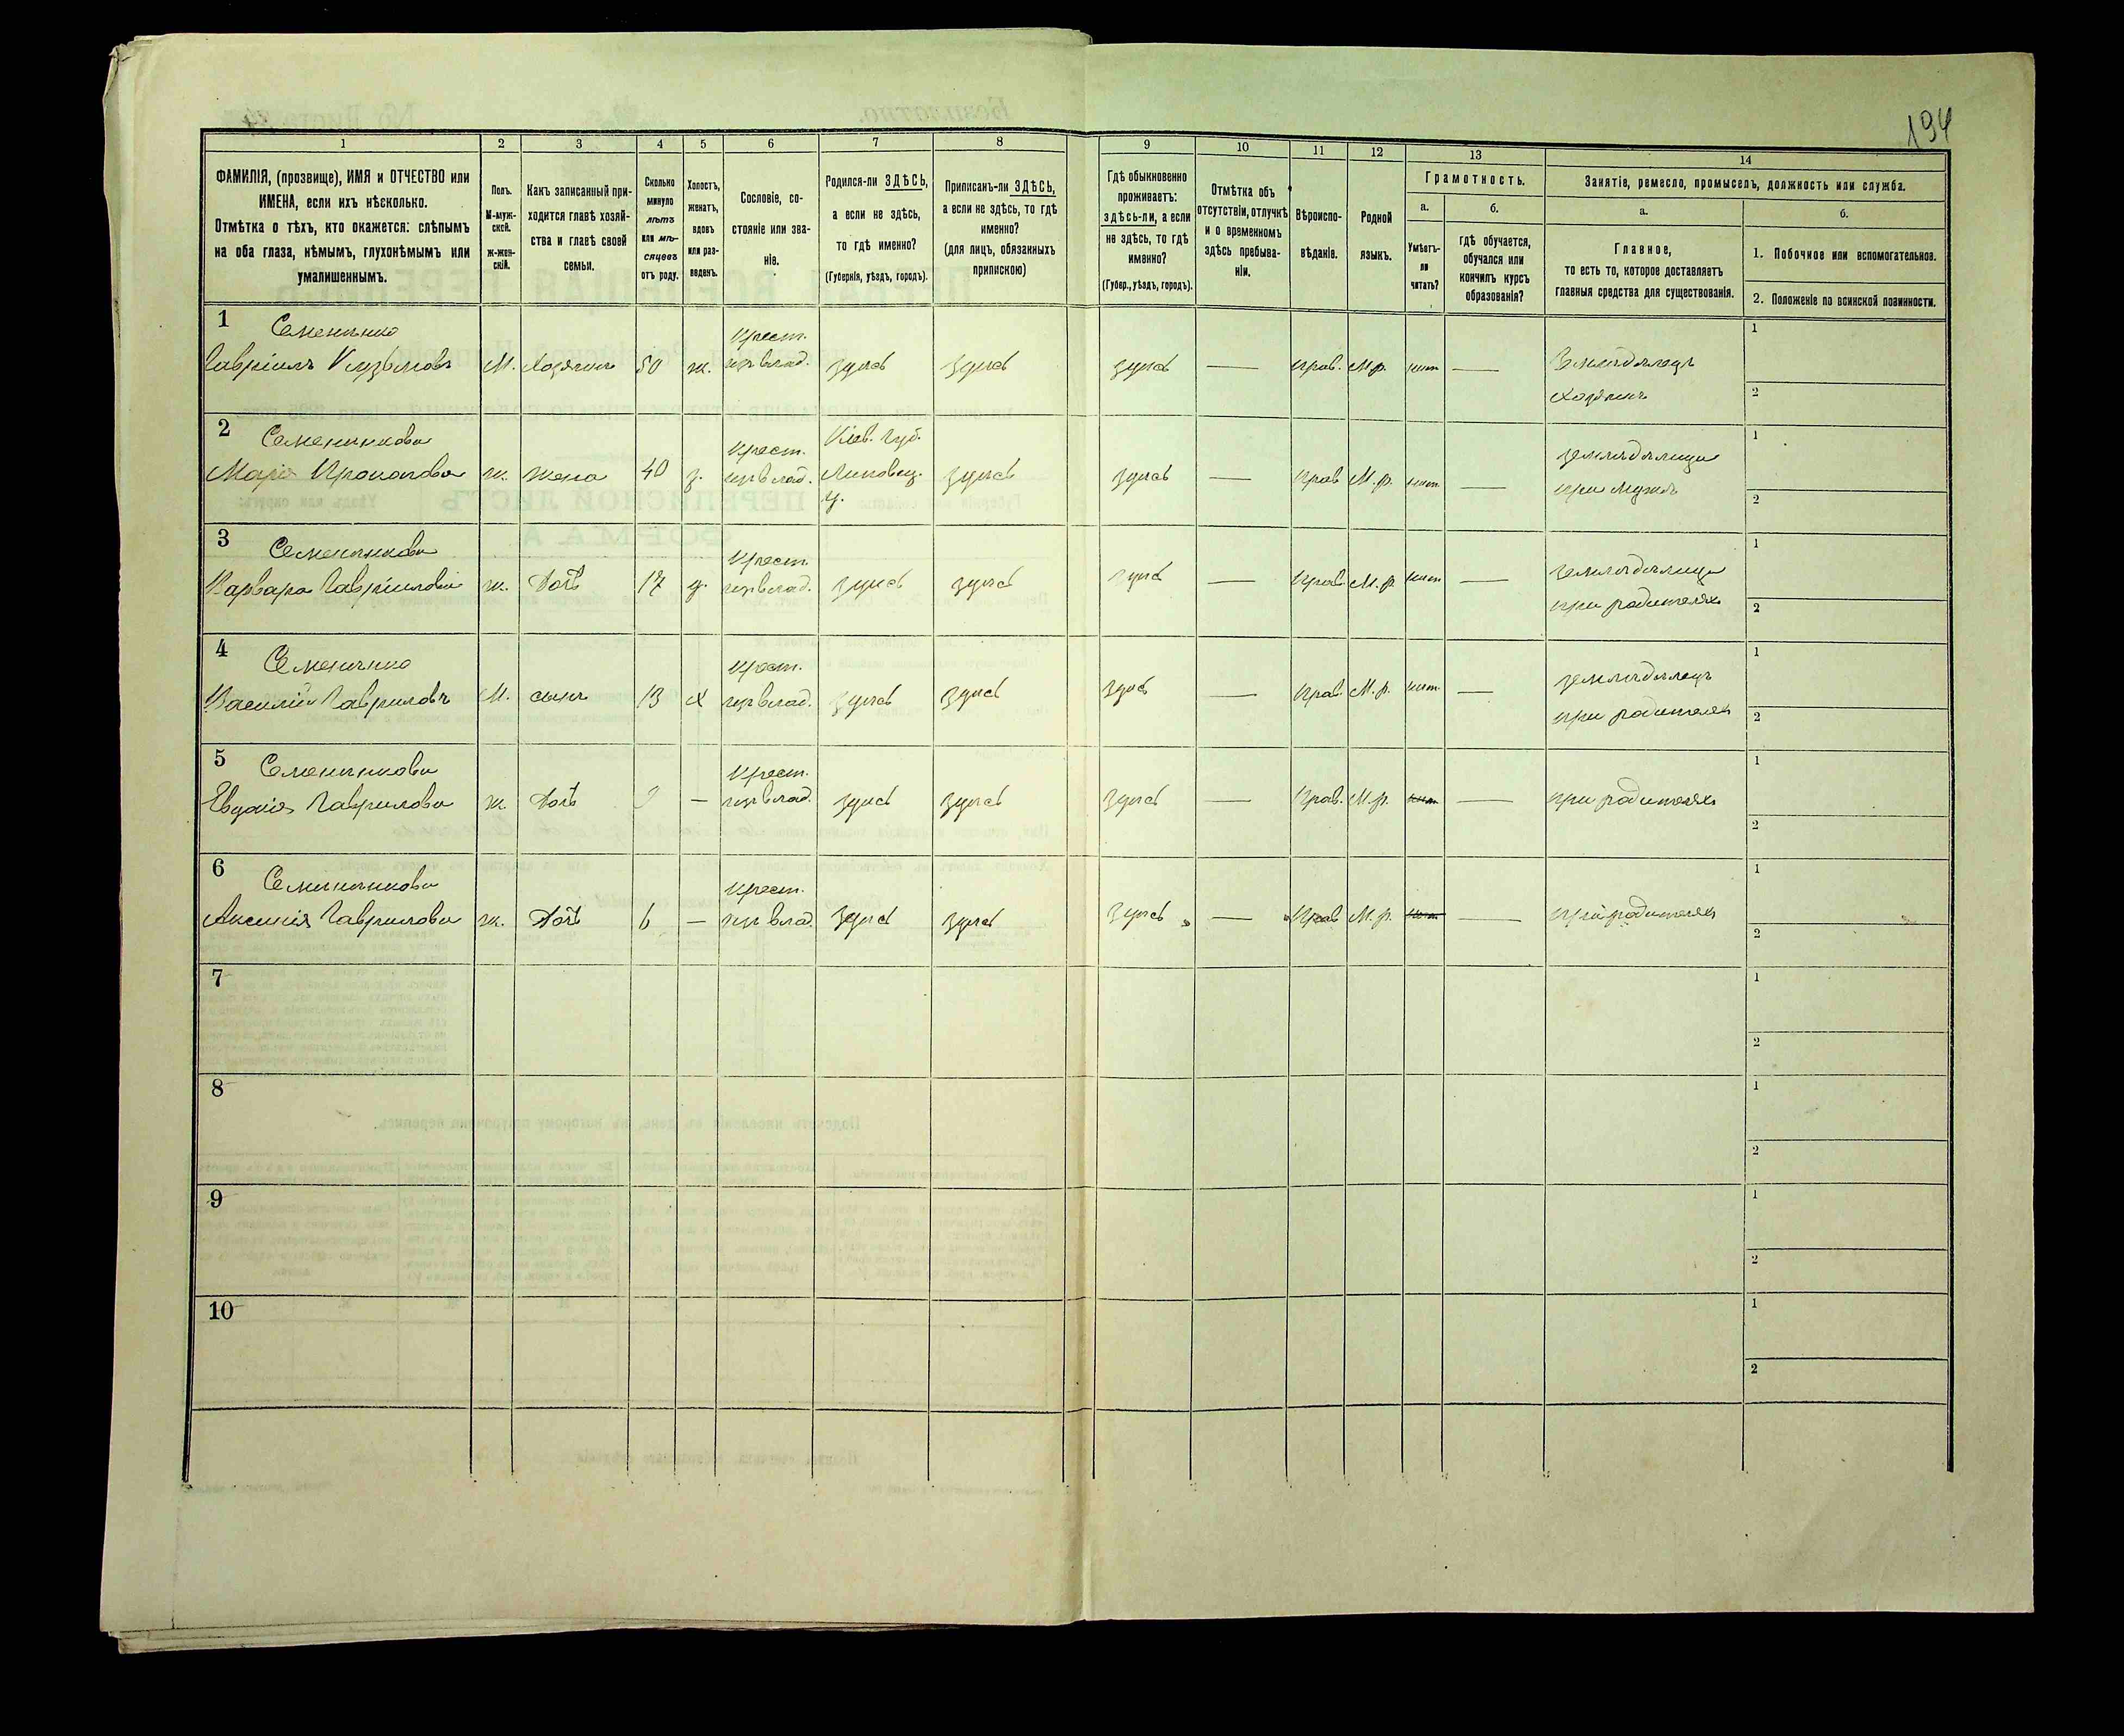 194
1 2 3 4 5 6 7 8 9 10 11 12 13 14
ФАМИЛІЯ, (прозвище), ИМЯ и ОТЧЕСТВО или
ИМЕНА, если ихъ нѣсколько.
Отмѣтка о тѣхъ, кто окажется: слѣпымъ
на оба глаза, нѣмымъ, глухонѣмымъ или
умалишеннымъ.
Полъ.
М-муж-
ской.
ж-жен-
скій.
Какъ записанный при-
ходится главѣ хозяй-
ства и главѣ своей
семьи.
Сколько
минуло
лѣтъ
или мѣ-
сяцевъ
отъ роду.
Холостъ,
женатъ,
вдовъ
или раз-
веденъ.
Сословіе, со-
стояніе или зва-
ніе.
Родился-ли ЗДѢСЬ,
а если не здѣсь,
то гдѣ именно?
(Губернія, уѣздъ, городъ).
Приписанъ-ли ЗДѢСЬ,
а если не здѣсь, то гдѣ
именно?
(для лицъ, обязанныхъ
припискою)
Гдѣ обыкновенно
проживаетъ:
здѣсь-ли, а если
не здѣсь, то гдѣ
именно?
(Губер., уѣздъ, городъ).
Отмѣтка объ
отсутствіи, отлучкѣ
и о временномъ
здѣсь пребыва-
ніи.
Вѣроиспо-
вѣданіе.
Родной
языкъ.
Грамотность.
а.
Умѣетъ-
ли
читать?
б.
гдѣ обучается,
обучался или
кончилъ курсъ
образованія?
Занятіе, ремесло, промыселъ, должность или служба.
а.
Главное,
то есть то, которое доставляетъ
главныя средства для существованія.
б.
1. Побочное или вспомогательное.
2. Положеніе по воинской повинности.
1 Семенченко
Гавріилъ Кузьмовъ М. Хозяинъ 50 ж. Крест. здѣсь здѣсь здѣсь — Прав. М.р. нѣт — Земледѣлецъ
хозяинъ
1
2
2 Семенченкова Кіев. Губ.
Марія Прокопова ж. жена 40 з. Крест. здѣсь здѣсь — Прав М.р. нѣт — земледѣлица
у. при мужѣ
1
2
3 Семенченкова
Варвара Гавріилова ж. Дочь 17 Крест. здѣсь здѣсь здѣсь — Прав. М.р. нѣт — земледѣлица
при родителяхъ
1
2
4 Семенченко
Василій Гавриловъ М. сынъ 13 х Крест. здѣсь здѣсь здѣсь — Прав. М.р. нѣт. — земледѣлецъ
при родителях
1
2
5 Семенченкова
Евдокія Гаврилова ж. Дочь 9 — Крест. здѣсь здѣсь здѣсь — Прав. М.р. нѣт. — при родителяхъ
1
2
6 Семенченкова
Аксинія Гаврилова ж. Дочь 6 — Крест. здѣсь здѣсь здѣсь — Прав М.р. нѣт — при родителях
1
2
7
1
2
8
1
2
9
1
2
10
1
2